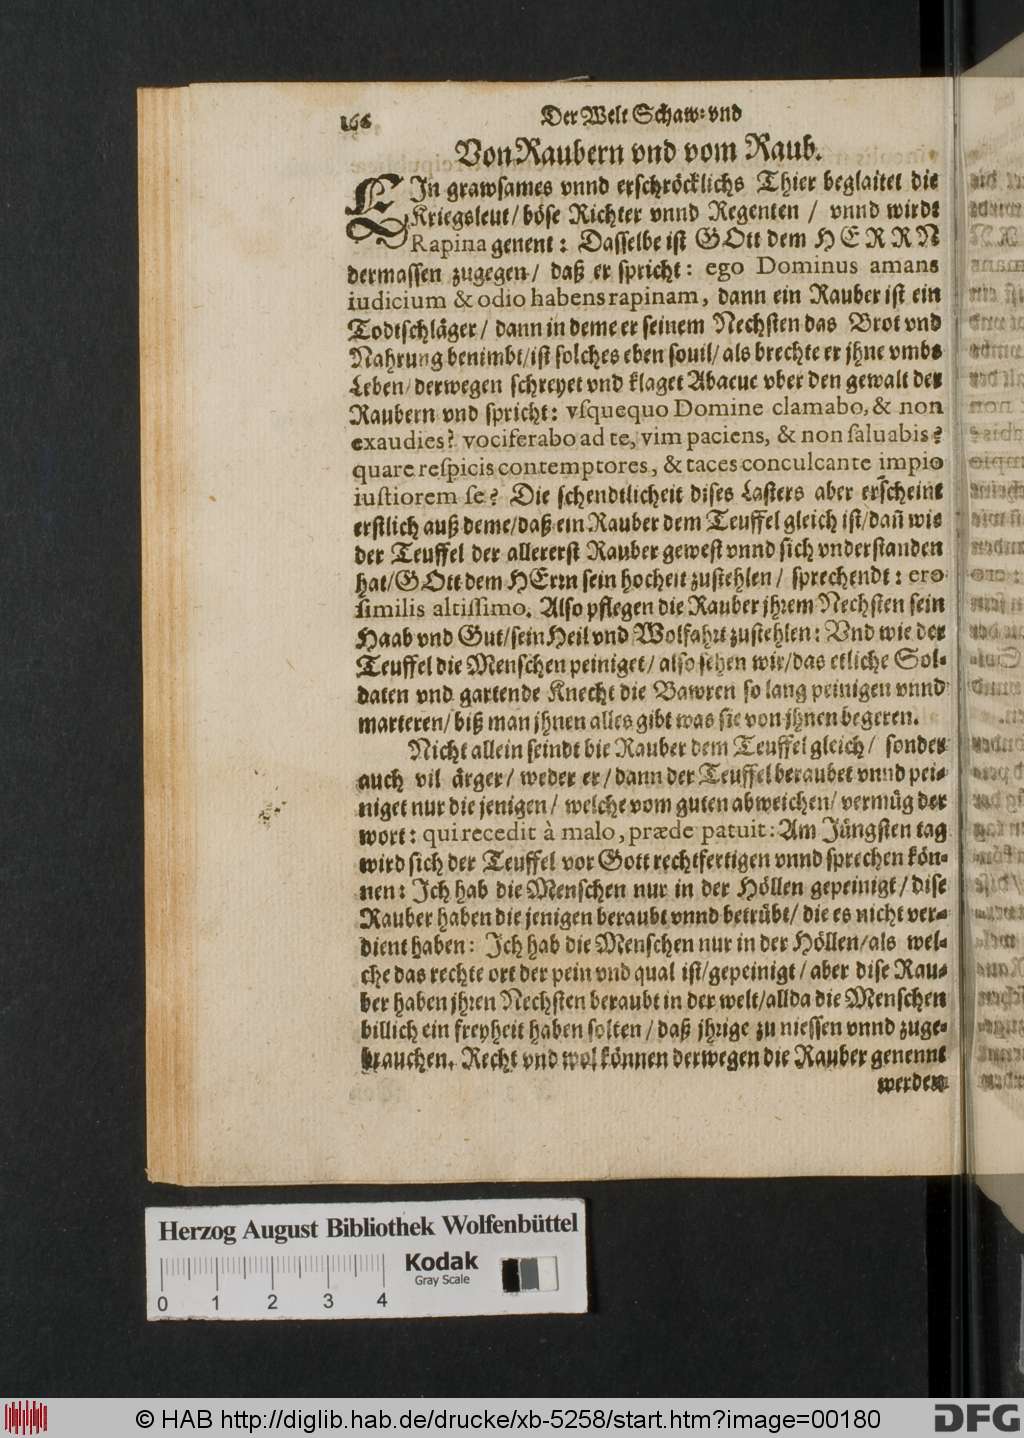 166
Der Welt Schaw- vnd
Von Raubern vnd vom Raub.
EIn grawsames vnnd erschröcklichs Thier beglaitet die
Kriegsleut/ böse Richter vnnd Regenten / vnnd wirdt
Rapina genent: Dasselbe ist GOtt dem HERRN
dermassen zugegen/ daß er spricht: ego Dominus amans
iudicium & odio habens rapinam, dann ein Rauber ist ein
Todtschläger/ dann in deme er seinem Nechsten das Brot vnd
Nahrung benimbt/ ist solches eben souil/ als brechte er jhne vmbs
Leben/ derwegen schreyet vnd klaget Abacuc vber den gewalt der
Raubern vnd spricht: vsquequo Domine clamabo, & non
exaudies? vociferabo ad te, vim paciens, & non saluabis?
quare respicis contemptores, & taces conculcante impio
iustiorem se? Die schendtlicheit dises Lasters aber erscheint
erstlich auß deme/ daß ein Rauber dem Teuffel gleich ist/ dañ wie
der Teuffel der allererst Rauber gewest vnnd sich vnderstanden
hat/ GOtt dem HErrn sein hocheit zustehlen/ sprechendt: ero
similis altissimo. Also pflegen die Rauber jhrem Nechsten sein
Haab vnd Gut/ sein Heil vnd Wolfahrt zustehlen: Vnd wie der
Teuffel die Menschen peiniget/ also sehen wir/ das etliche Sol-
daten vnd gartende Knecht die Bawren so lang peinigen vnnd
marteren/ biß man jhnen alles gibt was sie von jhnen begeren.
Nicht allein seindt die Rauber dem Teuffel gleich/ sonder
auch vil ärger/ weder er/ dann der Teuffel beraubet vnnd pei-
niget nur die jenigen/ welche vom guten abweichen/ vermüg der
wort: qui recedit à malo, præde patuit: Am Jüngsten tag
wird sich der Teuffel vor Gott rechtfertigen vnnd sprechen kön-
nen: Ich hab die Menschen nur in der Höllen gepeinigt/ dise
Rauber haben die jenigen beraubt vnnd betrübt/ die es nicht ver-
dient haben: Ich hab die Menschen nur in der Höllen/ als wel-
che das rechte ort der pein vnd qual ist/ gepeinigt/ aber dise Rau-
ber haben jhren Nechsten beraubt in der welt/ allda die Menschen
billich ein freyheit haben solten/ daß jhrige zu niessen vnnd zuge-
brauchen. Recht vnd wol können derwegen die Rauber genennt
werden
Herzog August Bibliothek Wolfenbüttel
Kodak
Gray Scale
0 1 2 3 4
© HAB http://diglib.hab.de/drucke/xb-5258/start.htm?image=00180
DFG